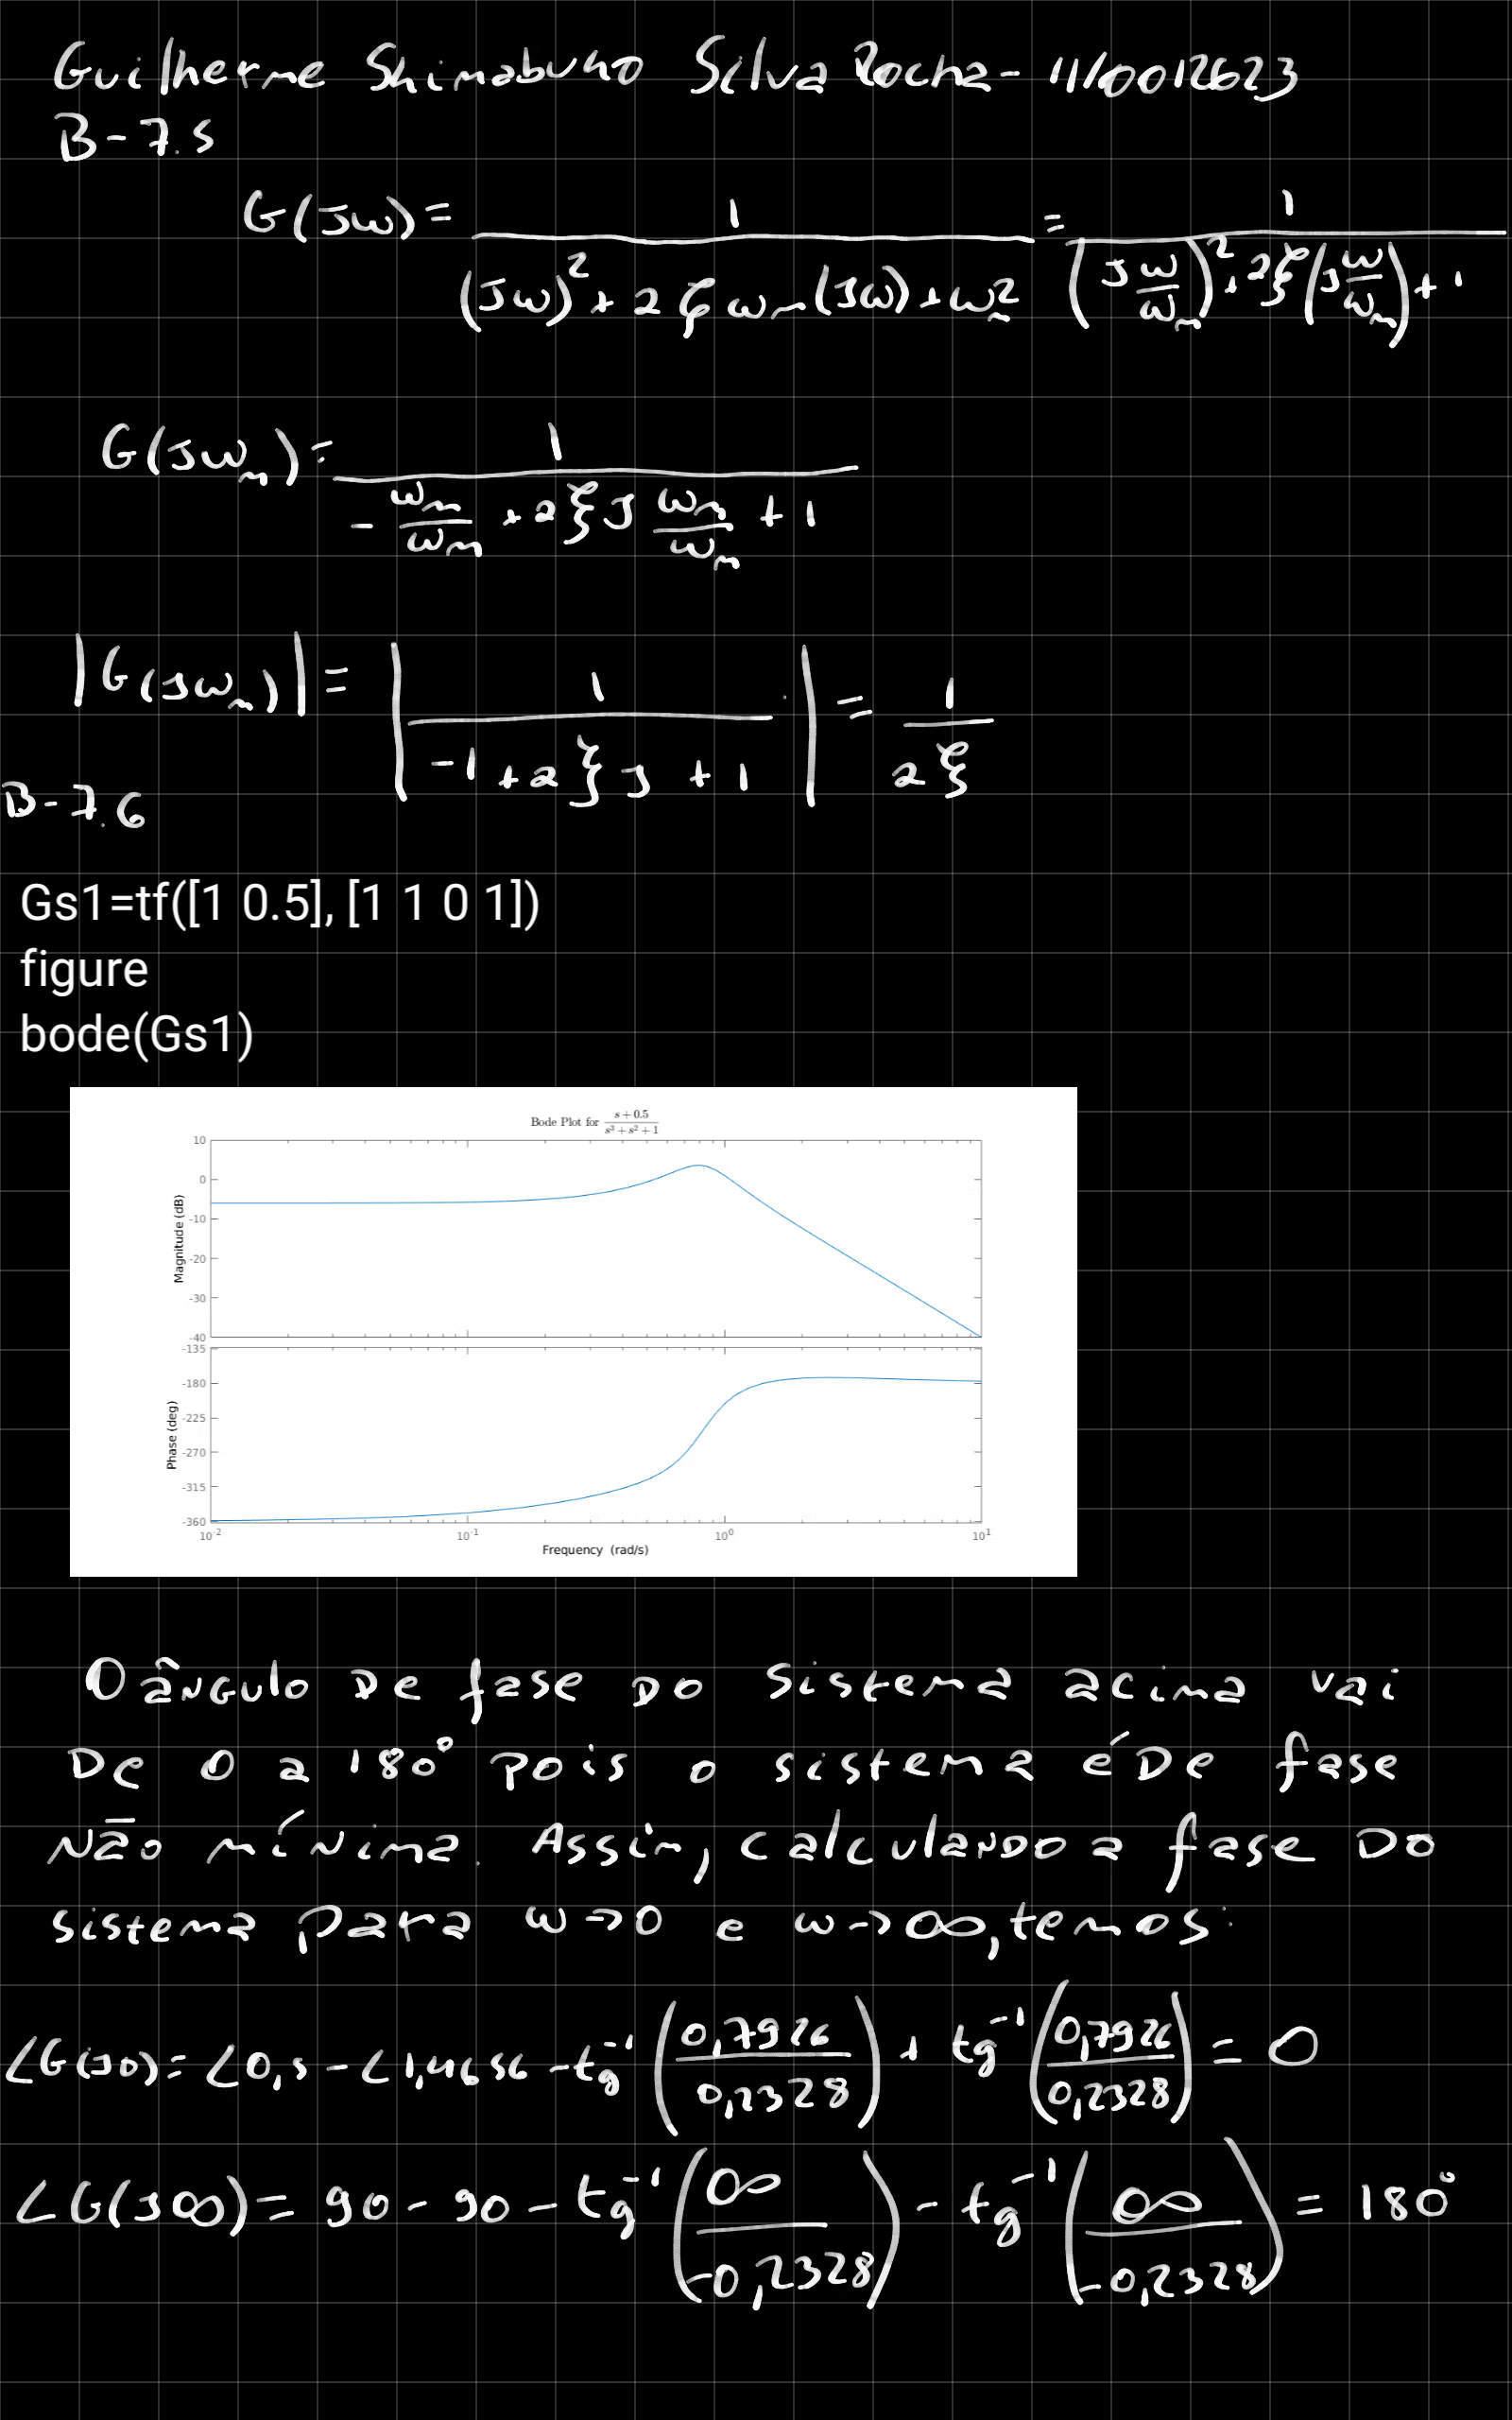 Guilherme Shimabuko Silva Rocha - 11/0012623
B-7.5
G(jω) = 1 / ((jω)² + 2ξωn(jω) + ωn²) = 1 / ((j ω/ωn)² + 2ξ(j ω/ωn) + 1)
G(jωn) = 1 / (- ωn/ωn + 2ξj ωn/ωn + 1)
|G(jωn)| = | 1 / (-1 + 2ξj + 1) | = 1 / 2ξ
B-7.6
Gs1=tf([1 0.5], [1 1 0 1])
figure
bode(Gs1)
Bode Plot for (s + 0.5) / (s³ + s² + 1)
Magnitude (dB)
10
0
-10
-20
-30
-40
Phase (deg)
-135
-180
-225
-270
-315
-360
10⁻² 10⁻¹ 10⁰ 10¹
Frequency (rad/s)
O ângulo de fase do sistema acima vai
de 0 a 180° pois o sistema é de fase
não mínima. Assim, calculando a fase do
sistema para ω→0 e ω→∞, temos:
∠G(j0) = ∠0,5 - ∠1,4656 - tg⁻¹(0,7926 / 0,2328) + tg⁻¹(0,7926 / 0,2328) = 0
∠G(j∞) = 90 - 90 - tg⁻¹(∞ / -0,2328) - tg⁻¹(∞ / -0,2328) = 180°